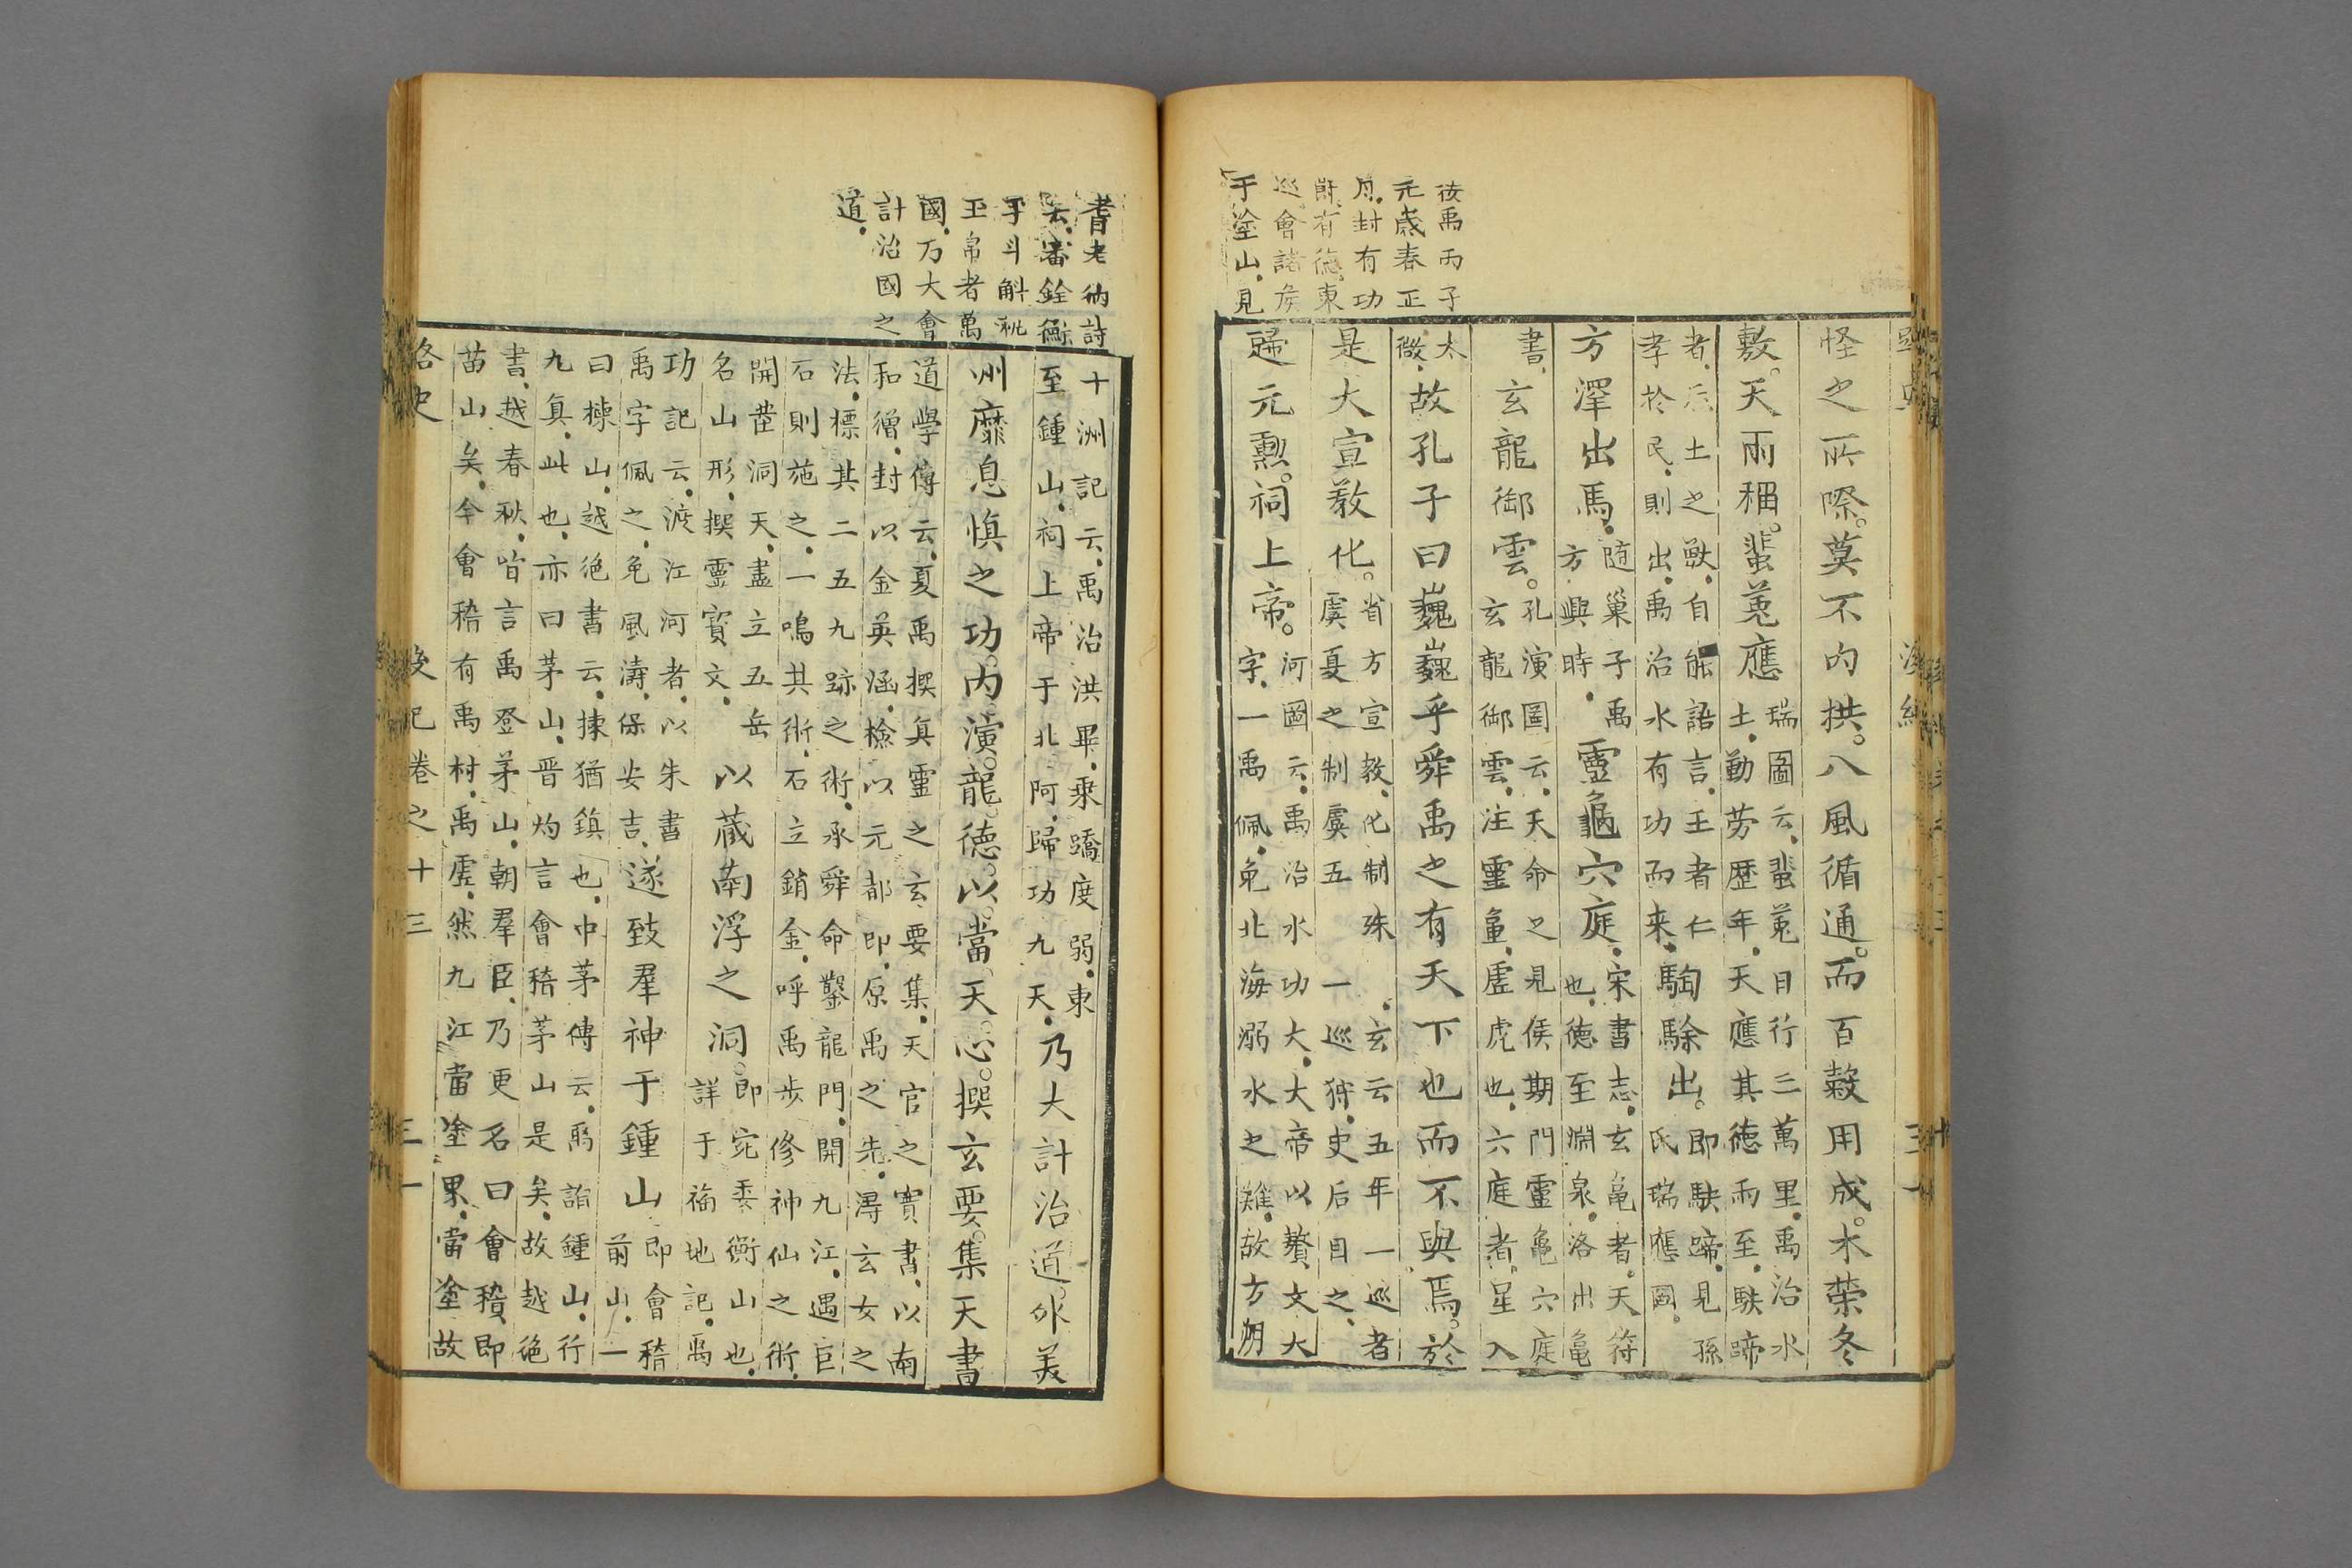 後禹丙子
元歲春正
月封有功
爵有德東
巡會諸矦
于塗山見
怪之所際莫不内拱八風循通而百穀用成木榮冬
敷天雨稻蜚菟應瑞圖云蜚菟日行三萬里禹治水
土勤劳歷年天應其徳而至駃蹄
者后土之獸自能語言王者仁
孝於民則出禹治水有功而来騊駼出即駃蹄見孫
氏瑞應圖
方澤出馬隨巢子禹
方興時靈龜穴庭宋書志玄龜者天符
也徳至淵泉洛出龜
書玄龍御雲孔演圖云天命之見侯期門靈龜穴庭
玄龍御雲注靈龜虚虎也六庭者星入
太
微故孔子曰巍巍乎舜禹之有天下也而不與焉於
是大宣教化省方宣教化制殊
虞夏之制虞五一玄云五年一巡者
巡狩史后目之
歸元勲祠上帝河圖云禹治水功大大帝以賛文大
字一禹佩免北海溺水之難故方朔
耆老納詩
云審銓衡
平斗斛
玉帛者萬
國乃大會
計治國之
道
十洲記云禹治洪畢乘蹻度弱東
至鍾山祠上帝于北阿歸功九天乃大計治道外美
州靡息慎之功内演龍徳以當天心撰玄要集天書
道學傳云夏禹撰真靈之玄要集天官之寶書以南
和繒封以金英涵檢以元都即原禹之先濤玄女之
法標其二五九跡之術承舜命鑿龍門開九江遇巨
石則施之一鳴其術石立銷金呼禹步修神仙之術
開茝洞天盡立五岳
名山形撰靈寳文以蔵南浮之洞即宛委衡山也
詳于福地記禹
功記云渡江河者以朱書
禹字佩之免風濤保安吉遂致羣神于鍾山即會稽
前山一
曰楝山越绝書云揀猶鎮也中茅傳云禹詣鍾山行
九真此也亦曰茅山晋灼言會稽茅山是矣故越绝
書越春秋皆言禹登茅山朝羣臣乃更名曰會稽即
苗山矣今會稽有禹村禹虚然九江當塗果當塗故
路史
後紀卷之十三
三一